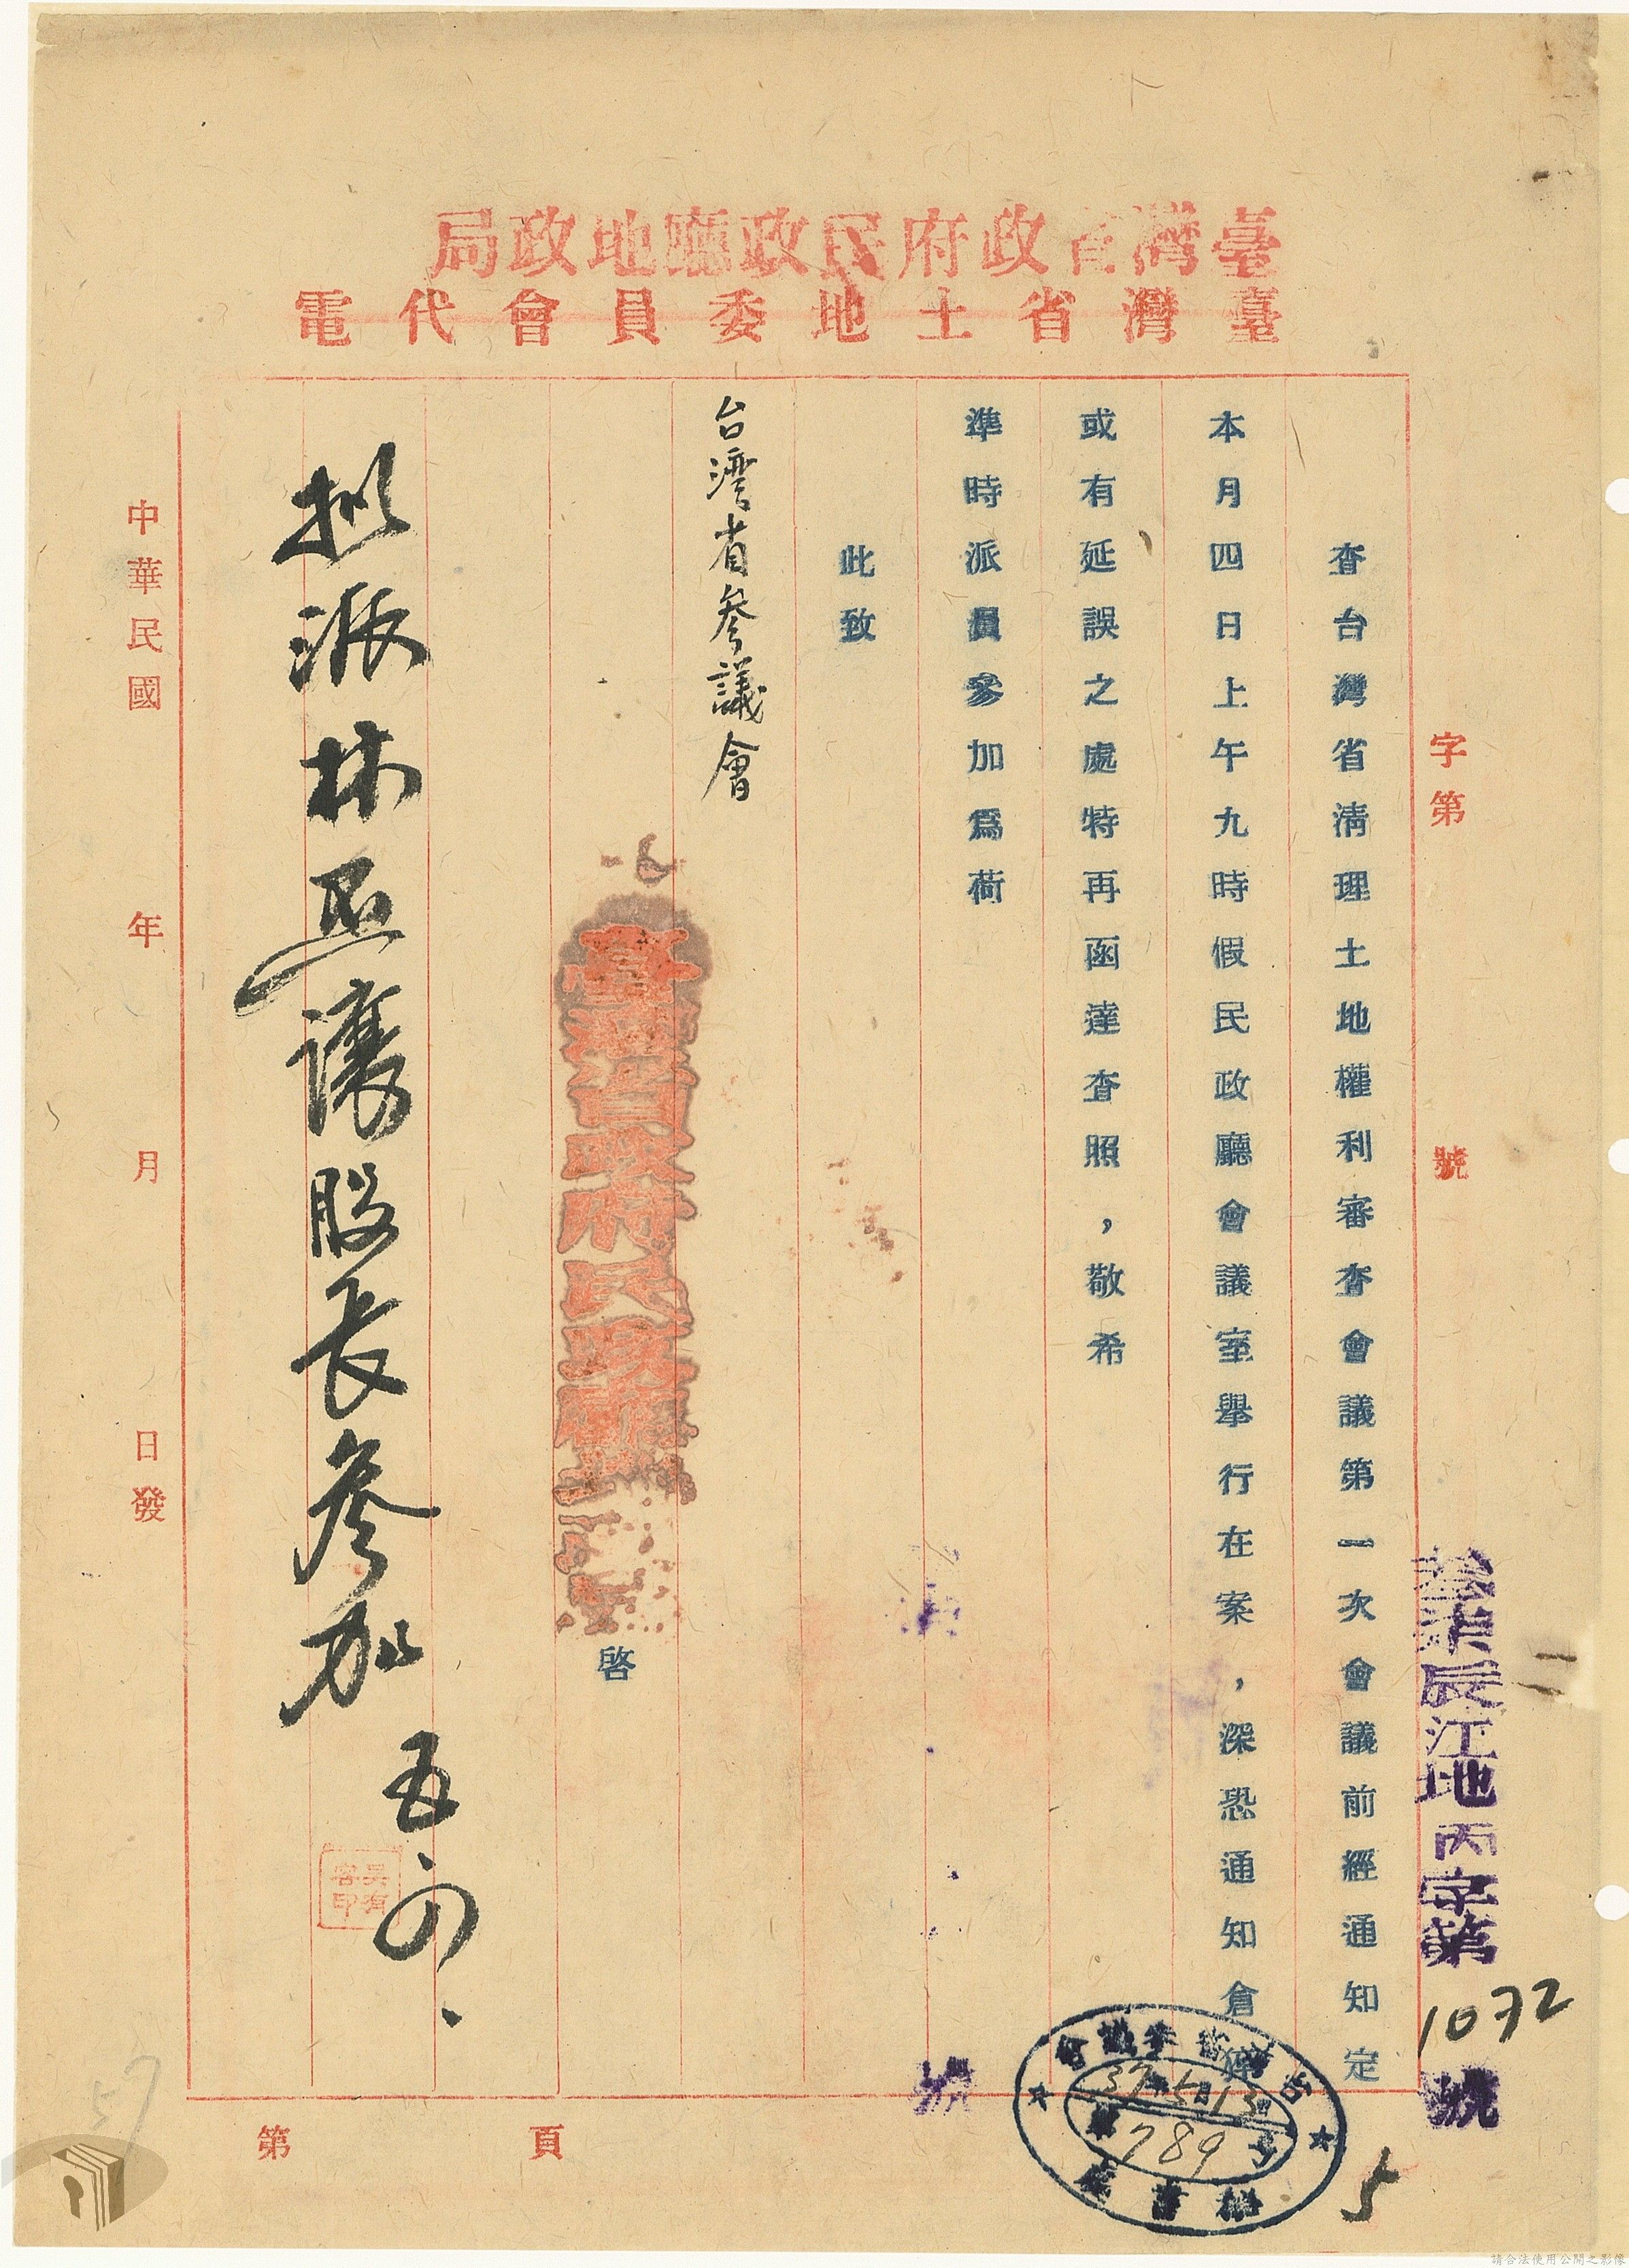 臺灣省政府民政廳地政局
臺灣省土地委員會代電
字第　號
辰江地丙字第1072號
查台灣省清理土地權利審查會議第一次會議前經通知定
本月四日上午九時假民政廳會議室舉行在案，深恐通知倉
或有延誤之處特再函達查照，敬希
準時派員參加爲荷
此致
台湾省參議會
臺灣省政府民政廳
啓
擬派林
股長參加
五
吳有容印
中華民國　年　月　日發
號
37年5月13日
789
5
57
第　頁
請合法使用公開之影像